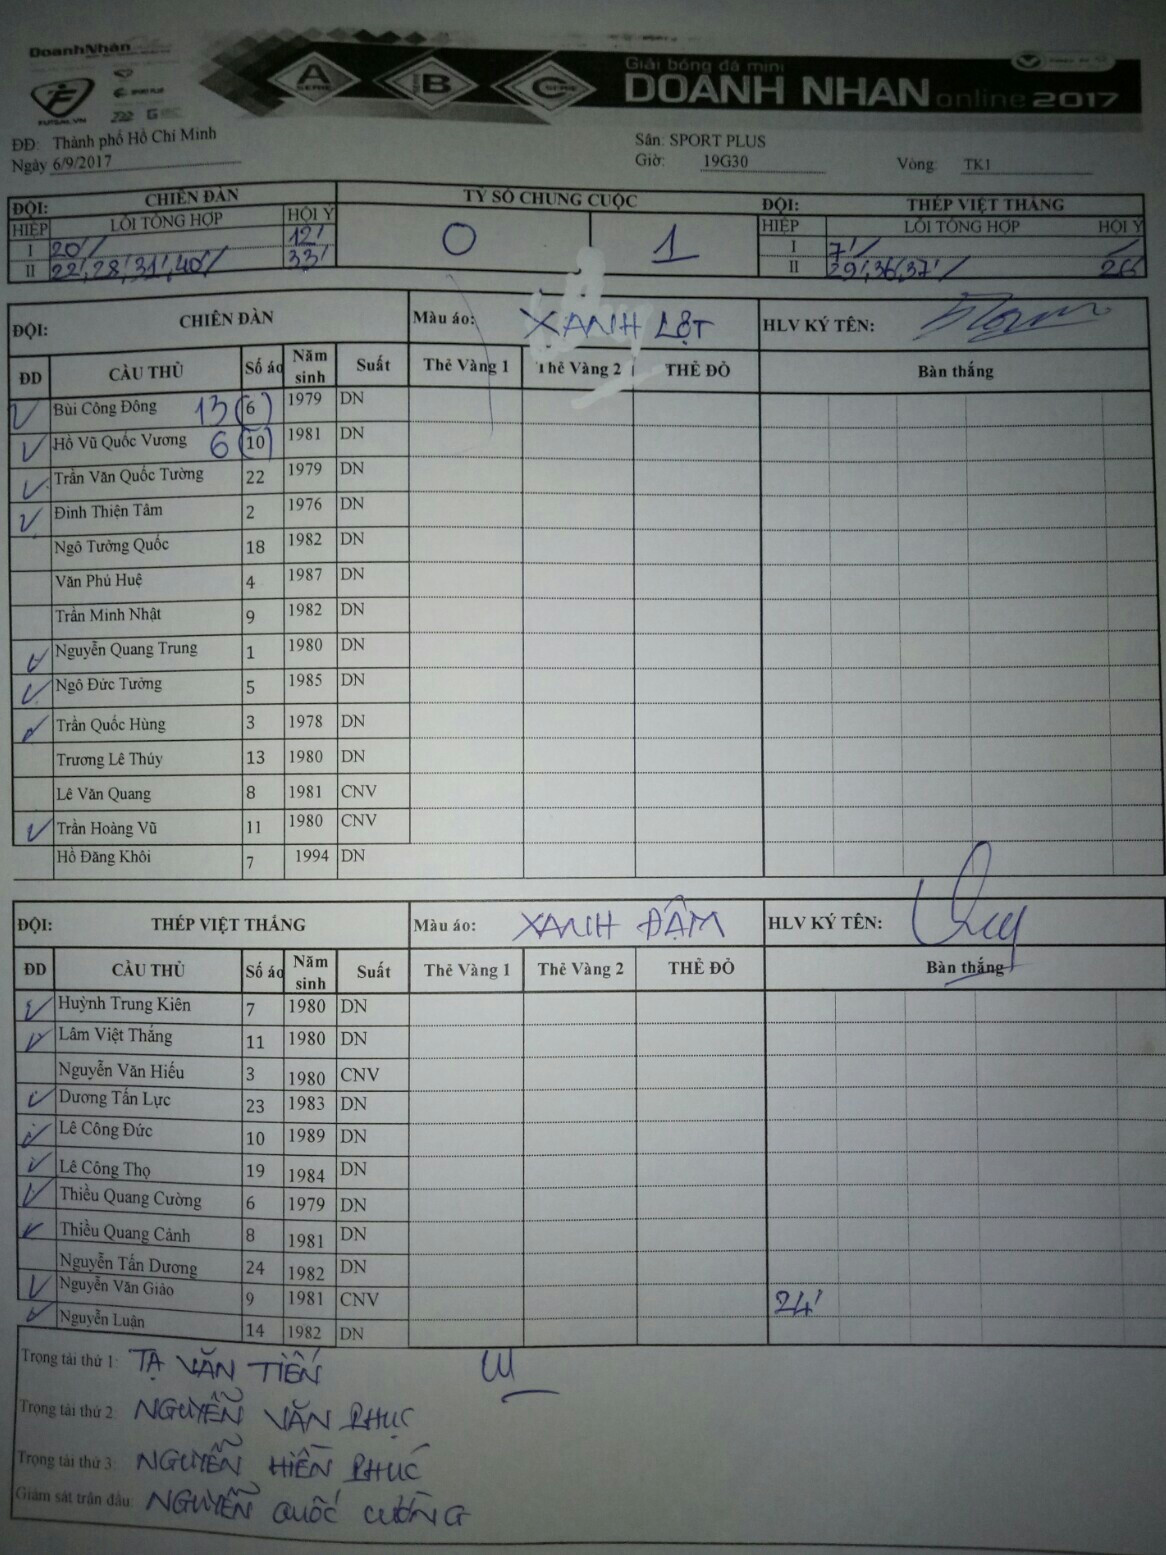 DoanhNhân
FUTSAL.VN
A
SERIE
B
C
SERIE
Giải bóng đá mini
DOANH NHAN online 2017
ĐĐ: Thành phố Hồ Chí Minh
Sân: SPORT PLUS
Ngày 6/9/2017
Giờ: 19G30
Vòng: TK1
ĐỘI: CHIẾN ĐÀN
TỶ SỐ CHUNG CUỘC
ĐỘI: THÉP VIỆT THẮNG
HIỆP LỖI TỔNG HỢP HỘI Ý
0 1
HIỆP LỖI TỔNG HỢP HỘI Ý
I 20'/ 12'
I 7'/
II 22',28',31',40'/ 33'
II 29',36,37'/
ĐỘI: CHIẾN ĐÀN Màu áo: XANH LỢT HLV KÝ TÊN:
ĐD CẦU THỦ Số áo Năm sinh Suất Thẻ Vàng 1 Thẻ Vàng 2 THẺ ĐỎ Bàn thắng
Bùi Công Đông 13 (6) 1979 DN
Hồ Vũ Quốc Vương 6 (10) 1981 DN
Trần Văn Quốc Tường 22 1979 DN
Đinh Thiện Tâm 2 1976 DN
Ngô Tưởng Quốc 18 1982 DN
Văn Phú Huệ 4 1987 DN
Trần Minh Nhật 9 1982 DN
Nguyễn Quang Trung 1 1980 DN
Ngô Đức Tưởng 5 1985 DN
Trần Quốc Hùng 3 1978 DN
Trương Lê Thúy 13 1980 DN
Lê Văn Quang 8 1981 CNV
Trần Hoàng Vũ 11 1980 CNV
Hồ Đăng Khôi 7 1994 DN
ĐỘI: THÉP VIỆT THẮNG Màu áo: XANH ĐẬM HLV KÝ TÊN:
ĐD CẦU THỦ Số áo Năm sinh Suất Thẻ Vàng 1 Thẻ Vàng 2 THẺ ĐỎ Bàn thắng
Huỳnh Trung Kiên 7 1980 DN
Lâm Việt Thắng 11 1980 DN
Nguyễn Văn Hiếu 3 1980 CNV
Dương Tấn Lực 23 1983 DN
Lê Công Đức 10 1989 DN
Lê Công Thọ 19 1984 DN
Thiều Quang Cường 6 1979 DN
Thiều Quang Cảnh 8 1981 DN
Nguyễn Tấn Dương 24 1982 DN
Nguyễn Văn Giào 9 1981 CNV 24'
Nguyễn Luận 14 1982 DN
Trọng tài thứ 1: TẠ VĂN TIẾN
Trọng tài thứ 2: NGUYỄN VĂN PHỤC
Trọng tài thứ 3: NGUYỄN HIỀN PHÚC
Giám sát trận đấu: NGUYỄN QUỐC CƯỜNG